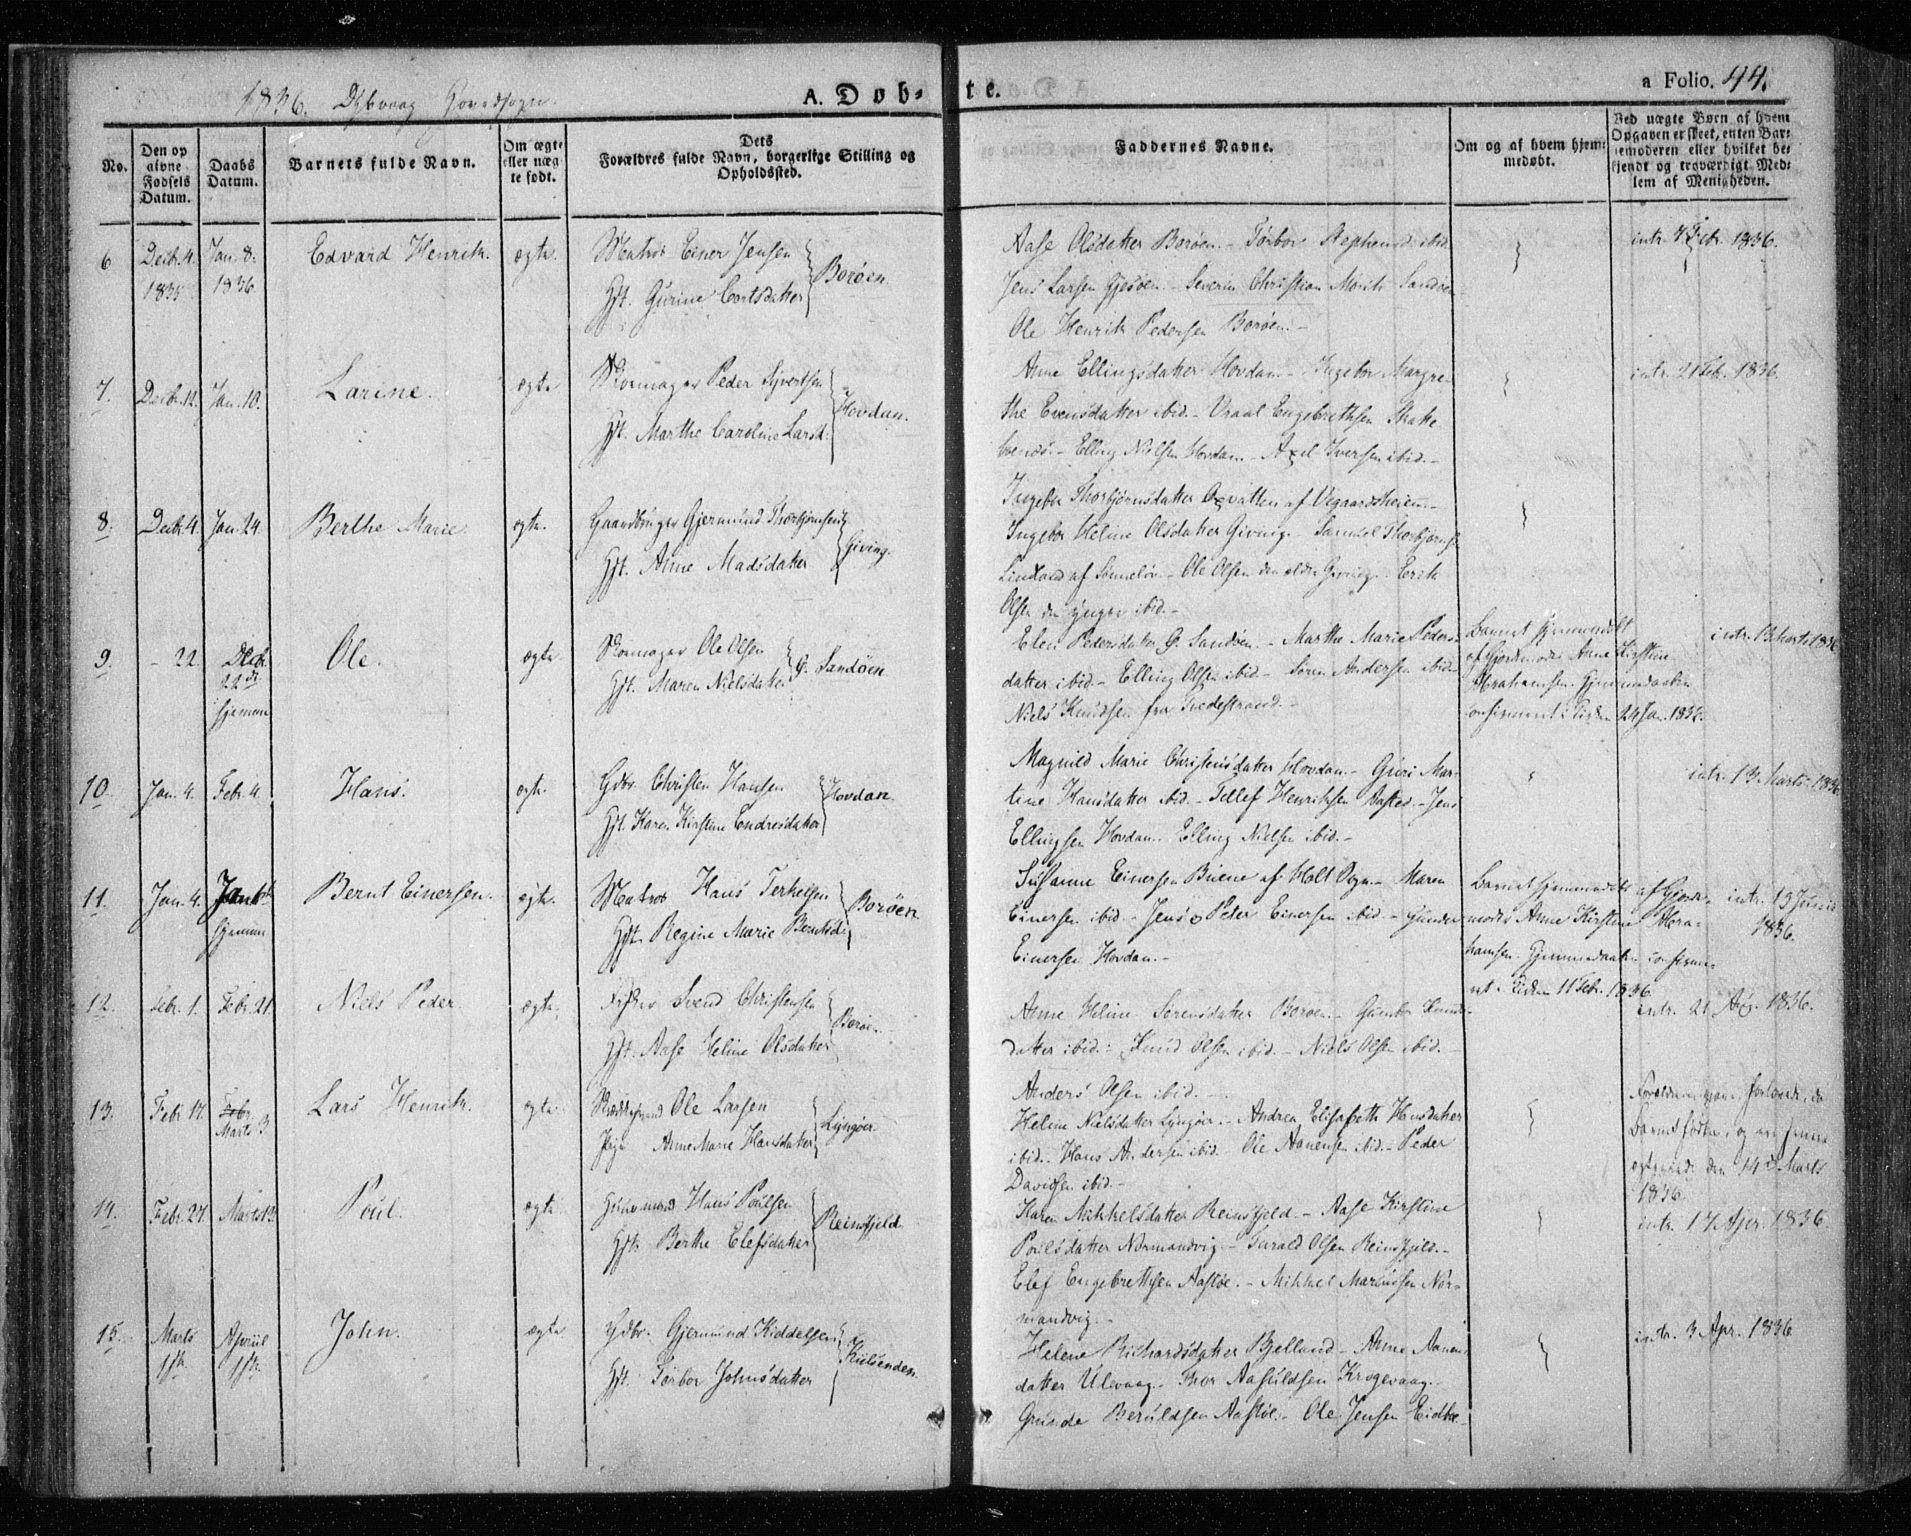 1836. Dybvaag Hovedsogn.
A. Døb-
te.
a Folio. 44.
No.
Den op
givne
Fødsels
Datum.
Daabs
Datum.
Barnets fulde Navn.
Om ægte
eller uæg
te født.
Dets
Forældres fulde Navn, borgerlige Stilling og
Opholdssted.
Faddernes Navne.
Om og af hvem hjem-
medøbt.
Ved uægte Børn af hvem
Opgaven er skeet, enten Bar-
nemoderen eller hvilket be-
kjendt og troværdigt Med-
lem af Menigheden.
6
Decb. 4.
1835
Jan. 8.
1836
Edvard Henrik.
ægte.
Matros Einer Jensen
Hst. Gurine Cortsdatter
Borøen
Aase Olsdatter Borøen. - Torbor Stephensd. ibid.
Jens Larsen Gjesøen. - Severin Christian Moritz Sandøen
Ole Henrik Pedersen Borøen. -
intr. 7 Febr. 1836.
7.
Decb. 12.
Jan. 10.
Larine.
ægte
Skomager Peder Syvertsen
Hst. Marthe Caroline Larsd.
Hovdan.
Anne Ellingsdatter Hovdan - Ingebor Margre-
the Evensdatter ibid. - Vraal Engebrethsen Skatte
- Elling Nielsen Hovdan. - Axel Iversen ibid. -
intr. 21 Febr. 1836.
8.
Decb. 4.
Jan. 24.
Berthe Marie
ægte.
Gaardbruger Gjermund Thorbjørnsen
Hst. Anne Madsdatter
Giving.
Ingebor Thorbjørnsdatter af Vegaardsheien. -
Ingebor Heline Olsdatter Giving. Samuel Thorbjørns.
af Sønneløv - Ole Olsen den ældre Giving - Erik
Olsen den yngre ibid. -
9.
- 22.
Decb.
22de
hjemme
Ole.
ægte
Skomager Ole Olsen
Hst. Maren Nielsdatter
G. Sandøen
Elen Pedersdatter G. Sandøen. - Marthe Marie Peders-
datter ibid - Elling Olsen ibid - Søren Andersen ibid
Niels Knudsen fra Tvedestrand. -
Barnet hjemmedøbt
af Gjordemoder Anne Kirstine
Abrahamsen. Hjemmedaaben
confirmeret i Kirken 24 Jan. 1836.
intr. 13 Marts 1836
10.
Jan. 4.
Febr. 4.
Hans.
ægte.
Gdbr. Christen Hansen
Hst. Karen Kirstine Endresdatter
Hovdan.
Magnild Marie Christensdatter Hovdan. - Guri Mar-
tine Hansdatter ibid. - Tellef Henriksen Aasted. - Jens
Ellingsen Hovdan. Elling Nielsen ibid. -
intr. 13 Marts 1836
11.
Jan. 4.
hjemme
Bernt Einersen.
ægte.
Matros Hans Terkelsen
Hst. Regine Marie Berntsd.
Borøen
Susanne Einersen Buene af Holt Sogn - Maren
Einersen ibid - Jens Peter Einersen ibid - Gunder
Einersen Hovdan. -
Barnet hjemmedøbt af Gjorde-
moder Anne Kirstine Abra-
hamsen. Hjemmedaaben confirme-
ret i Kirken 11 Febr. 1836.
intr. 19 Juni
1836.
12.
Febr. 1.
Febr. 21.
Niels Peder
ægte.
Fisker Svend Christensen
Hst. Aase Heline Olsdatter
Borøen.
Anne Heline Sørensdatter Borøen - Gunbor Knuds-
datter ibid. Knud Olsen ibid - Niels Olsen ibid.
Anders Olsen ibid. -
intr. 21 Apr. 1836.
13.
Febr. 17.
Febr.
Marts 3
Lars Henrik.
ægte.
Ole Larsen
Pige Anne Marie Hansdatter
Lyngøer
Heline Nielsdatter Lyngøer. - Andrea Elisabeth Hansdatter
ibid - Hans Andersen ibid. Ole Aanensen ibid - Peder
Davidsen ibid -
Forældrene vare forlovede, da
Barnet fødtes, og ere senere
ægteviede den 14de Marts
1836.
14.
Febr. 27.
Marts 13.
Poul.
ægte.
Huusmand Hans Poulsen
Hst. Berthe Elefsdatter
Reinsfjeld
Karen Mikkelsdatter Reinsfjeld - Aase Kirstine
Poulsdatter Normandvig - Tarald Olsen Reinsfjeld. -
Elef Engebrethsen Aastøe. - Mikkel Marcussen Nor-
mandvig. -
intr. 17 Apr. 1836.
15.
Marts
1ste
April
1ste
John.
ægte
Gdbr. Gjermund Kiddelsen
Hst. Torbor Johnsdatter
Kiilsenden
Helene Richardsdatter Bjelland - Anne Aanens-
datter Ulevaag - Thor Aasuldsen Krogevaag. -
Gunde Beruldsen Aastøe - Ole Jensen Eidbo -
intr. 3 Apr. 1836